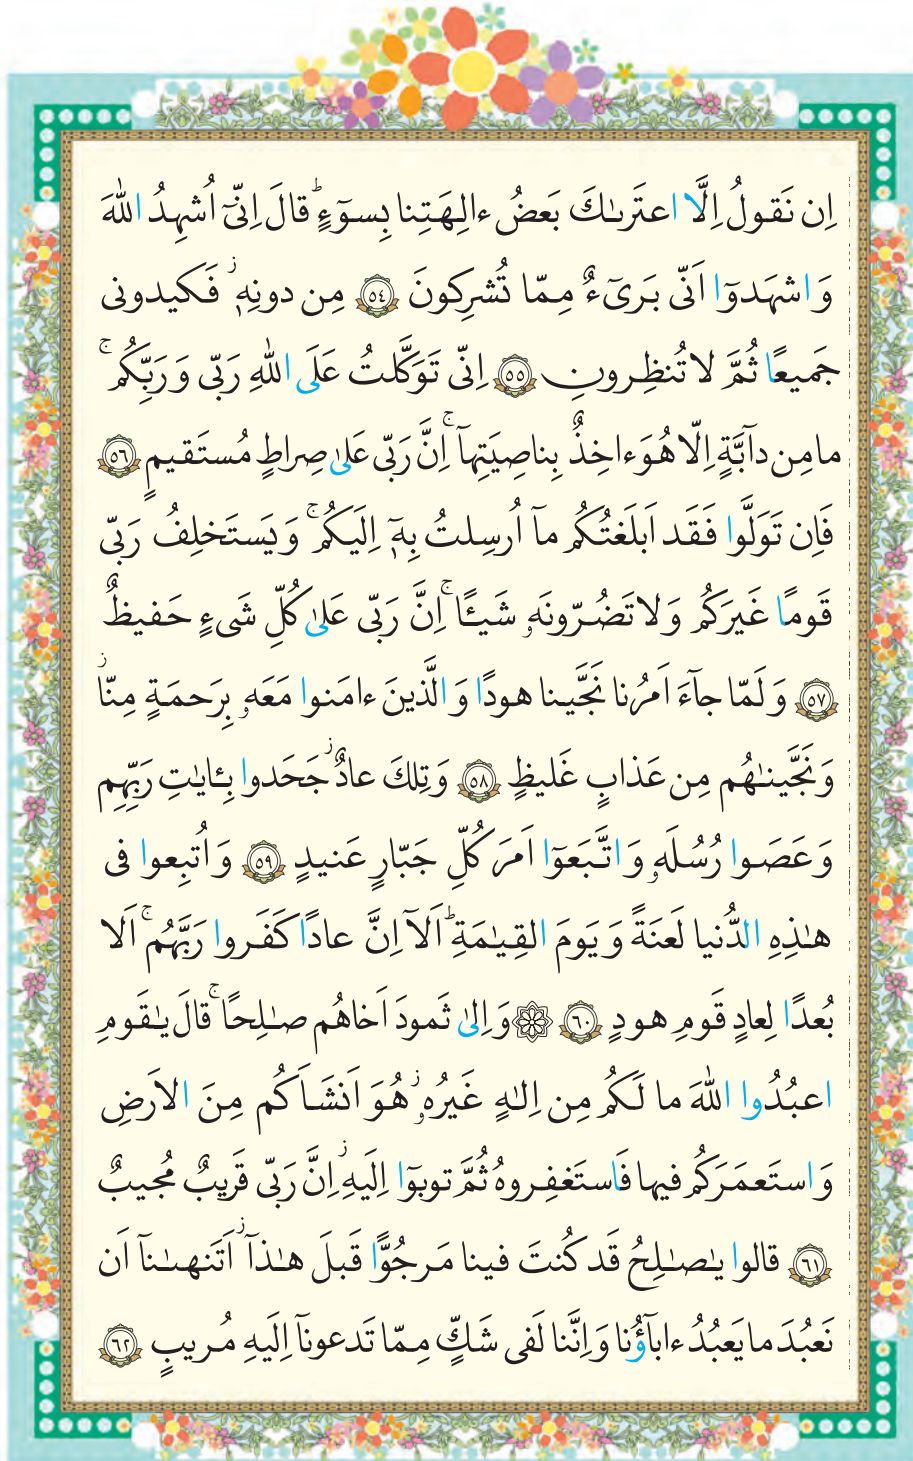 اِن نَقولُ اِلَّا اعتَرىٰكَ بَعضُ ءالِهَتِنا بِسوٓءٍ ؕ قالَ اِنّىٓ اُشهِدُ اللّٰهَ
وَ اشهَدوٓا اَنّى بَرىٓءٌ مِمّا تُشرِكونَ ﴿٥٤﴾ مِن دونِهٖ ۖ فَكيدونى
جَميعًا ثُمَّ لا تُنظِرونِ ﴿٥٥﴾ اِنّى تَوَكَّلتُ عَلَى اللّٰهِ رَبّى وَ رَبِّكُم ۚ
ما مِن دآبَّةٍ اِلّا هُوَ ءاخِذٌ بِناصِيَتِهآ ۚ اِنَّ رَبّى عَلىٰ صِراطٍ مُستَقيمٍ ﴿٥٦﴾
فَاِن تَوَلَّوا فَقَد اَبلَغتُكُم مآ اُرسِلتُ بِهٖٓ اِلَيكُم ۚ وَ يَستَخلِفُ رَبّى
قَومًا غَيرَكُم وَ لا تَضُرّونَهٗ شَيـًٔا ۚ اِنَّ رَبّى عَلىٰ كُلِّ شَىءٍ حَفيظٌ
﴿٥٧﴾ وَ لَمّا جآءَ اَمرُنا نَجَّينا هودًا وَ الَّذينَ ءامَنوا مَعَهٗ بِرَحمَةٍ مِنّا ز
وَ نَجَّينٰهُم مِن عَذابٍ غَليظٍ ﴿٥٨﴾ وَ تِلكَ عادٌ ز جَحَدوا بِـٔايٰتِ رَبِّهِم
وَ عَصَوا رُسُلَهٗ وَ اتَّبَعوٓا اَمرَ كُلِّ جَبّارٍ عَنيدٍ ﴿٥٩﴾ وَ اُتبِعوا فى
هٰذِهِ الدُّنيا لَعنَةً وَ يَومَ القِيٰمَةِ ؕ اَلآ اِنَّ عادًا كَفَروا رَبَّهُم ۚ اَلا
بُعدًا لِعادٍ قَومِ هودٍ ﴿٦٠﴾ ۞ وَ اِلىٰ ثَمودَ اَخاهُم صـٰلِحًا ۚ قالَ يـٰقَومِ
اعبُدُوا اللّٰهَ ما لَكُم مِن اِلـٰهٍ غَيرُهٗ ز هُوَ اَنشَاَكُم مِنَ الاَرضِ
وَ استَعمَرَكُم فيها فَاستَغفِروهُ ثُمَّ توبوٓا اِلَيهِ ز اِنَّ رَبّى قَريبٌ مُجيبٌ
﴿٦١﴾ قالوا يـٰصـٰلِحُ قَد كُنتَ فينا مَرجُوًّا قَبلَ هـٰذآ ز اَتَنهىٰنآ اَن
نَعبُدَ ما يَعبُدُ ءابآؤُنا وَ اِنَّنا لَفى شَكٍّ مِمّا تَدعونآ اِلَيهِ مُريبٍ ﴿٦٢﴾